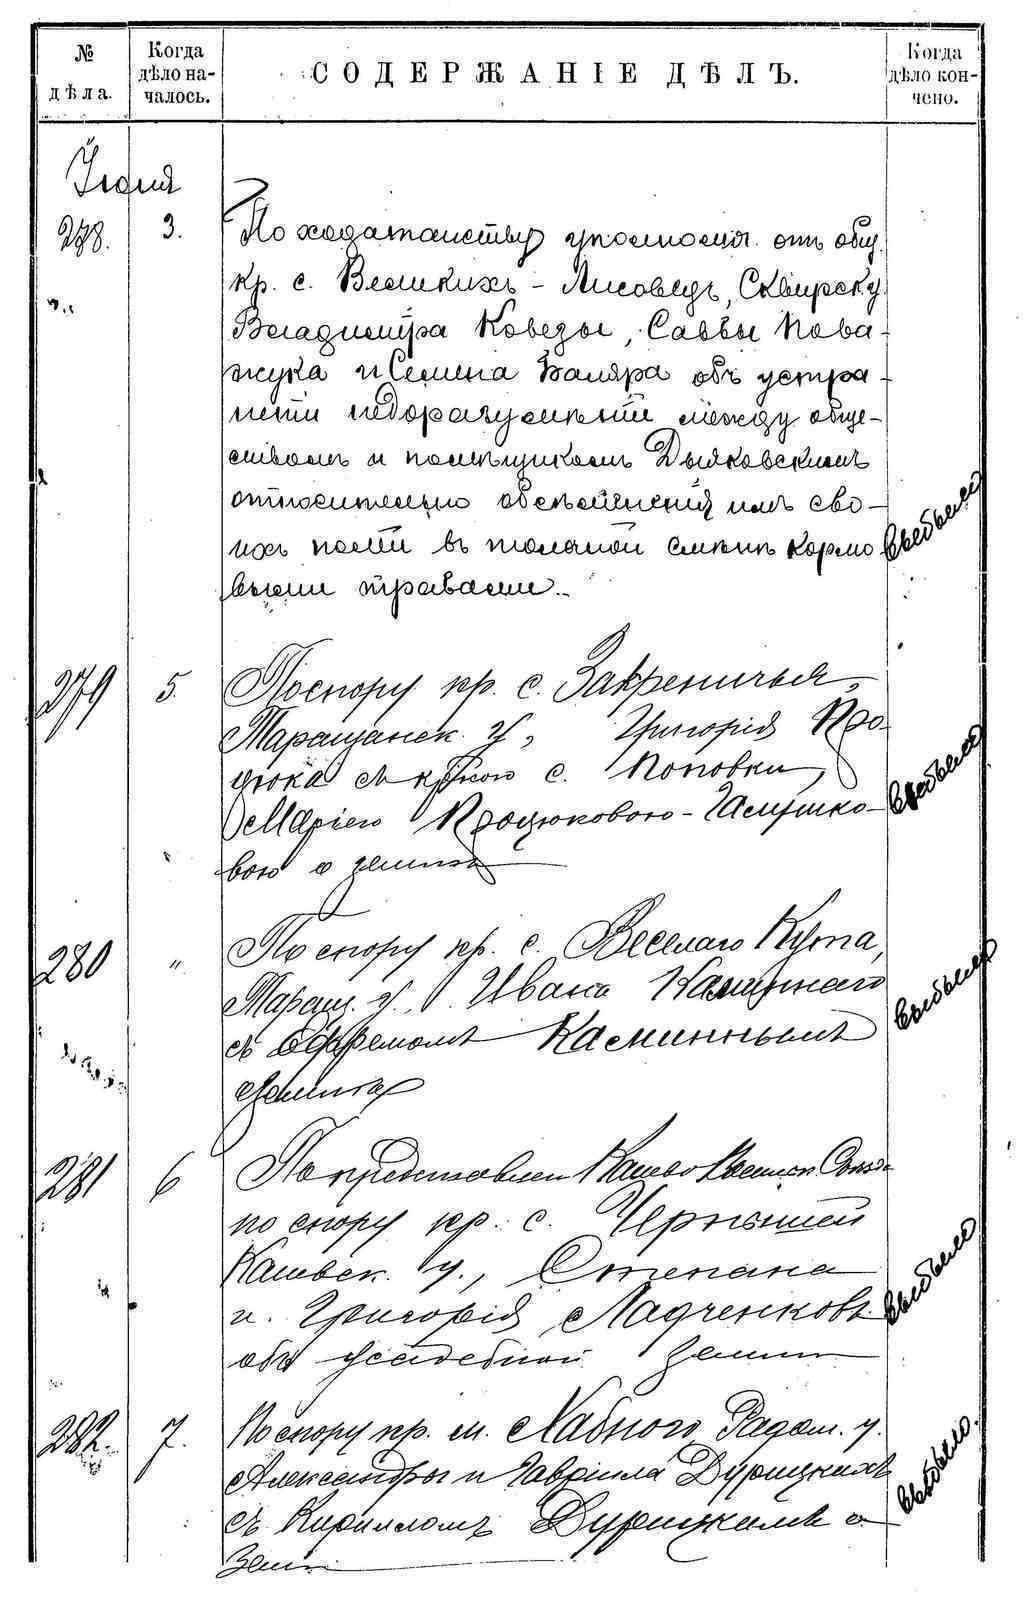 № дѣла.
Когда дѣло началось.
СОДЕРЖАНІЕ ДѢЛЪ.
Когда дѣло кончено.
Іюня
278. 3. По ходатайству уполномоч. отъ общ.
кр. с. Великихъ-Лисовецъ, Сквирск. у.
Владиміра Коведы, Саввы Пова-
жука и Семена Баляра объ устра-
неніи недоразумѣній между обще-
ствомъ и помѣщикомъ Дыяковскимъ
относительно обсѣмененія имъ сво-
ихъ полей въ толочной смѣнѣ кормо
выми травами.
выбыло
279 5. По спору кр. с. Закреничья,
Таращанск. у., Григорія Про-
цюка съ кр-кою с. Поповки,
Маріею Процюковою-Галушко-
вою о землѣ
выбыло
280 " По спору кр. с. Веселаго Кута,
Таращ. у., Ивана Калиннаго
съ Ефремомъ Калиннымъ
о землѣ
выбыло
281 6 По представлен. Каневск. Съѣзда
по спору кр. с. Чернышей
Каневск. у., Степана
и Григорія Ладченковъ
объ усадебной землѣ
выбыло
282. 7. По спору кр. м. Хабного, Радом. у.
Александры и Гавриила Дурицкихъ
съ Кирилломъ Дурицкимъ о
земл.
выбыло.